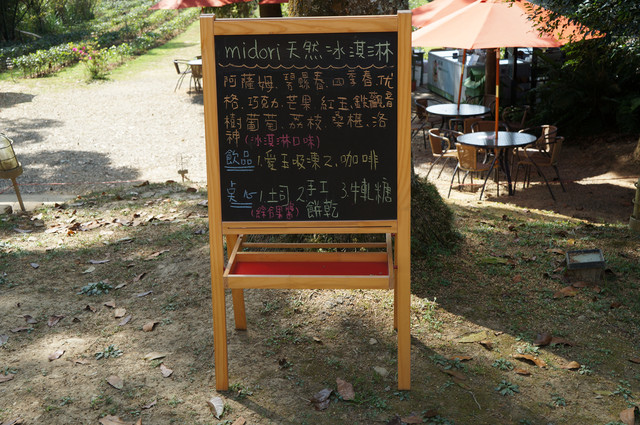 midori天然冰淇淋
阿薩姆.碧螺春.四季春.优
格.巧克力.芒果.紅玉.鉄觀音
樹葡萄.荔枝.桑椹.洛
神(冰淇淋口味)
飲品 1.愛玉吸凍 2.咖啡
桌心 1.土司 2.手工餅乾 3.牛軋糖